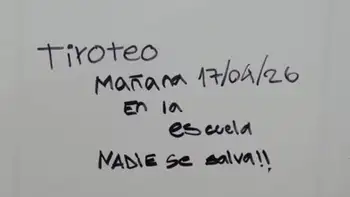 Tiroteo
Mañana 17/04/26
En la
escuela
NADIE se salva!!